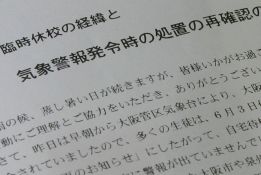 臨時休校の経緯と
気象警報発令時の処置の再確認の
の候、蒸し暑い日が続きますが、皆様いかがお過ご
動にご理解とご協力をいただき、ありがとうござい
きて、昨日は早朝から大阪管区気象台により、大阪
令されていましたので、多くの生徒は、6月3日
のお知らせ」にしたがって、自宅待
に警報が出ていませんで
大阪市や発